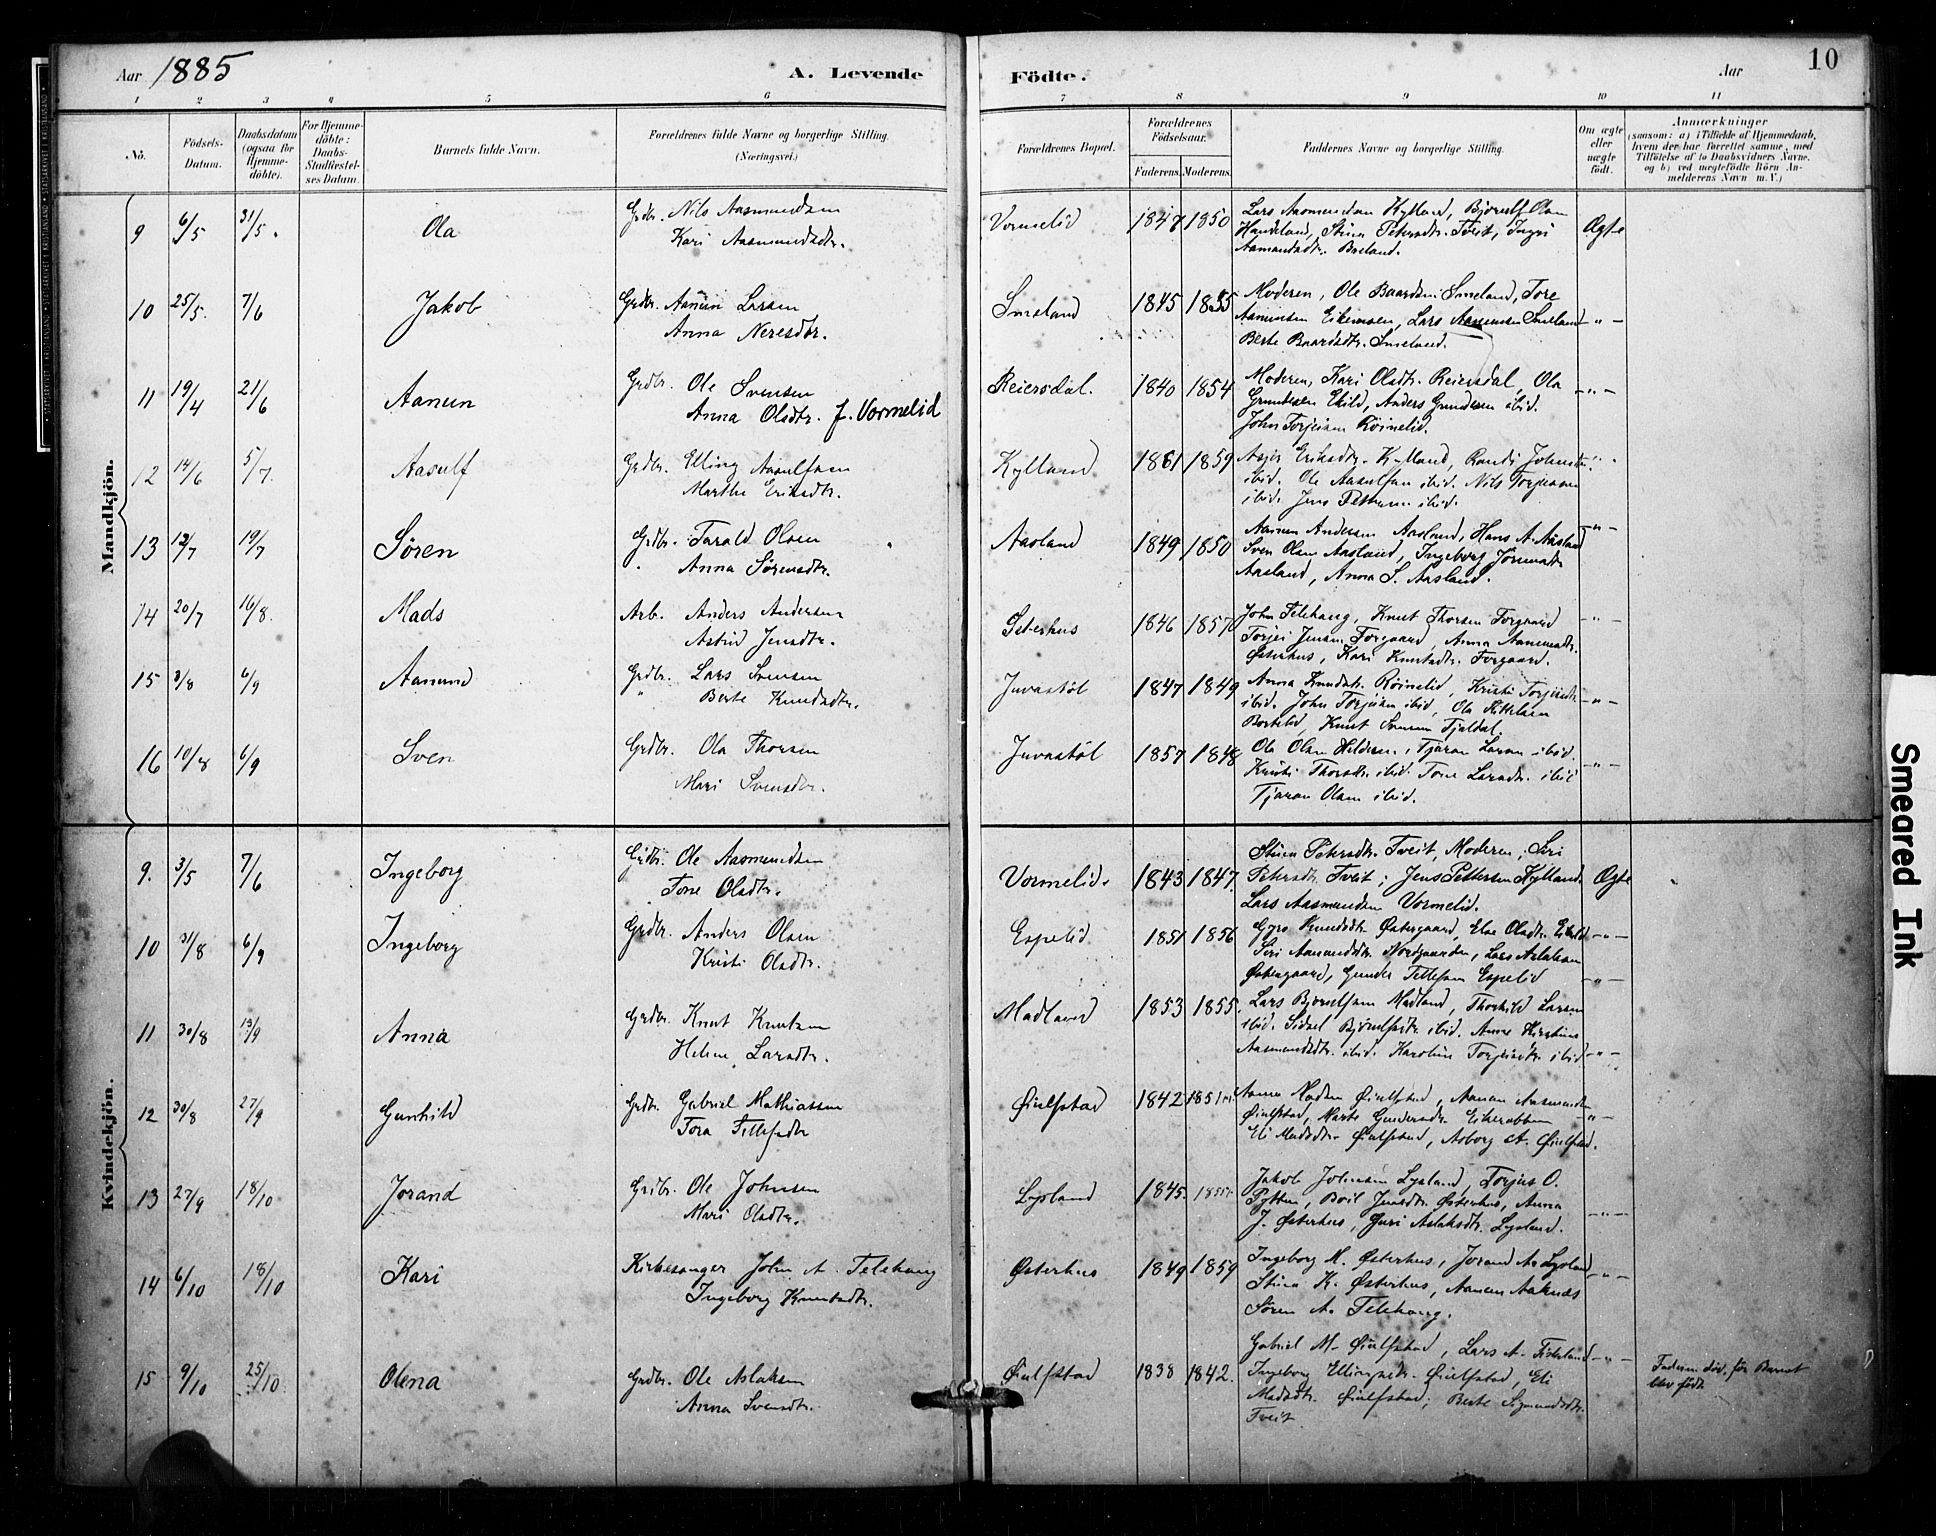 Aar 1885
A. Levende
Födte.
Aar
10
1 2 3 4 5 6 7 8 9 10 11
No.
Födsels-Datum.
Daabsdatum (ogsaa for Hjemme-döbte).
For Hjemme-döbte: Daabs-Stadfæstel-ses Datum.
Barnets fulde Navn.
Forældrenes fulde Navne og borgerlige Stilling. (Næringsvei.)
Forældrenes Bopæl.
Forældrenes Födselsaar.
Faderens.
Moderens.
Faddernes Navne og borgerlig Stilling.
Om ægte eller uægte födt.
Anmærkninger
(saasom: a) i Tilfælde af Hjemmedaab, hvem der har forrettet samme, med Tilföielse af to Daabsvidners Navne, og b) ved uægtefödte Börn Anmelderens Navn m. V.)
Mandkjön.
9 6/5 31/5. Ola Grdbr. Nils Aasmundsen
Kari Aasmundsdtr.
Vormelid 1847 1850 Lars Aasmundsen Kylland, Bjorulf Olsen
Handeland, Stina Petersdtr. Tveit, Ingri
Aamundsdtr. Breland.
Ægte
10 25/5. 7/6 Jakob Grdbr. Aanun Larsen
Anna Neresdtr.
Smeland 1845 1855 Moderen, Ole Baardsen Smeland, Tore
Aanunsen Eikerasen, Lars Aanunsen Smeland
Berte Baardsdtr. Smeland.
-"-
11 19/4 21/6 Aanun Grdbr. Ole Svensen
Anna Olsdtr. f. Vormelid
Reiersdal. 1840 1854 Moderen, Kari Olsdtr. Reiersdal, Ola
Gundersen Ekild, Anders Gundersen ibid.
John Torjeisen Röinelid.
-"-
12 14/6 5/7. Aasulf Grdbr. Elling Aasulfsen
Marthe Eriksdtr.
Kylland 1861 1859 Asjer Eriksdtr. Kylland, Randi Johnsdtr.
ibid. Ole Aasulfsen ibid. Nils Torjeisen
ibid. Jens Pettersen ibid.
13 12/7 19/7 Sören Grdbr. Tarald Olsen
Anna Sörensdtr.
Aasland 1849 1850 Aanen Andersen Aasland, Hans A. Aasland
Sven Olsen Aasland, Ingeborg Jörensdtr.
Aasland, Anna S. Aasland.
-"-
14 20/7 16/8. Mads Arb. Anders Andersen
Astrid Jensdtr.
1846 1857 John Telehaug, Knut Thorsen Forgaard
Torjei Jensen Forgaard, Anna Aanensdtr.
Østerhus, Kari Knutsdtr. Forgaard.
-"-
15 3/8 6/9 Aanund Grdbr. Lars Svensen
Berte Knudsdtr.
Juvastöl 1847 1849 Anna Knudsdtr. Röinelid, Kristi Torjeisdtr.
ibid. John Torjeisen ibid, Ola Kittelsen
Bortelid, Knut Svensen Fjeldal.
-"-
16 10/8 6/9 Sven Grdbr. Ola Thorsen
Mari Svensdtr.
Juvastöl 1857 1848 Ole Olsen, Tjaran Larsen ibid.
Kristi Thorsdtr. ibid. Tone Larsdtr. ibid
Tjaran Olsen ibid.
-"-
Kvindekjön.
9. 3/5 7/6 Ingeborg Grdbr. Ole Aasmundsen
Tone Olsdtr.
Vormelid. 1843 1847 Stina Petersdtr. Tveit, Moderen, Siri
Petersdtr. Tveit, Jens Pettersen Kylland
Lars Aasmundsen Vormelid.
Ægte
10 31/8 6/9 Ingeborg Grdbr. Anders Olsen
Kristi Olsdtr.
Espelid 1851 1856 Gyro Knudsdtr. Østergaard, Else Olsdtr. Ekild
Siri Aanundsdtr. Nordgaarden, Lars Aslaksen
Østergaard, Gunder Tellefsen Espelid
-"-
11 30/8 13/9 Anna Grdbr. Knut Knutsen
Helene Larsdtr.
Madland 1853 1855. Lars Bjorulfsen Madland, Thorkild Larsen
ibid. Sidsel Bjorulfsdtr. ibid. Anne Kirstine
Aasmundsdtr. ibid. Karoline Torjeisdtr. ibid
-"-
12 30/8 27/9 Gunhild Grdbr. Gabriel Mathiassen
Tora Tellefsdtr.
Øiulfstad 1842 1851 Anne Madsen Øiulfstad, Aanen Aasmundsen
Øiulfstad, Marte Gundersdtr. Eikerabben
Eli Madsdtr. Øiulfstad, Asborg A. Øiulfstad.
-"-
13 27/9 18/10 Jorand Grdbr. Ole Johnsen
Mari Olsdtr.
Lysland 1845. Jakob Johnsen Lysland, Torjus O.
Pytten, Boil Jensdtr. Østerhus, Anna
J. Østerhus, Guri Aslaksdtr. Lysland.
-"-
14 6/10 18/10 Kari Kirkesanger John A. Telehaug
Ingeborg Knutsdtr.
Østerhus 1849 1859 Ingeborg M. Østerhus, Jorand A. Lysland
Stina K. Østerhus, Aanen Aaknes
Sören A. Telehaug.
-"-
15 9/10 25/10 Olena Grdbr. Ole Aslaksen
Anna Svensdtr.
Øiulfstad 1838 1842. Gabriel M. Øiulfstad, Lars A. Fiskeland
Ingeborg Ellingsdtr. Øiulfstad, Eli
Madsdtr. Øiulfstad, Berte Sigmundsdtr.
Tveit.
-"-
Faderen död, för Barnet
blev födt
Smeared Ink
STATSARKIVET I KRISTIANSAND